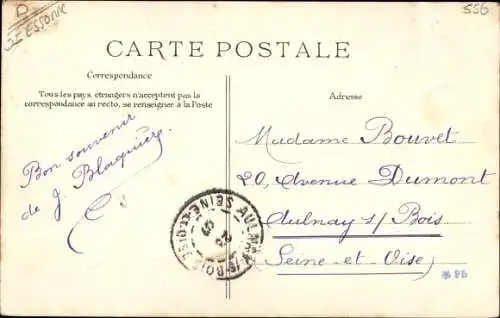 D
ESSONNE
556
CARTE POSTALE
Correspondance
Tous les pays étrangers n'acceptent pas la
correspondance au recto, se renseigner à la Poste
Adresse
Bon souvenir
de J. Blaquière.
Madame Bouvet
20, Avenue Dumont
Aulnay s/ Bois
Seine-et-Oise